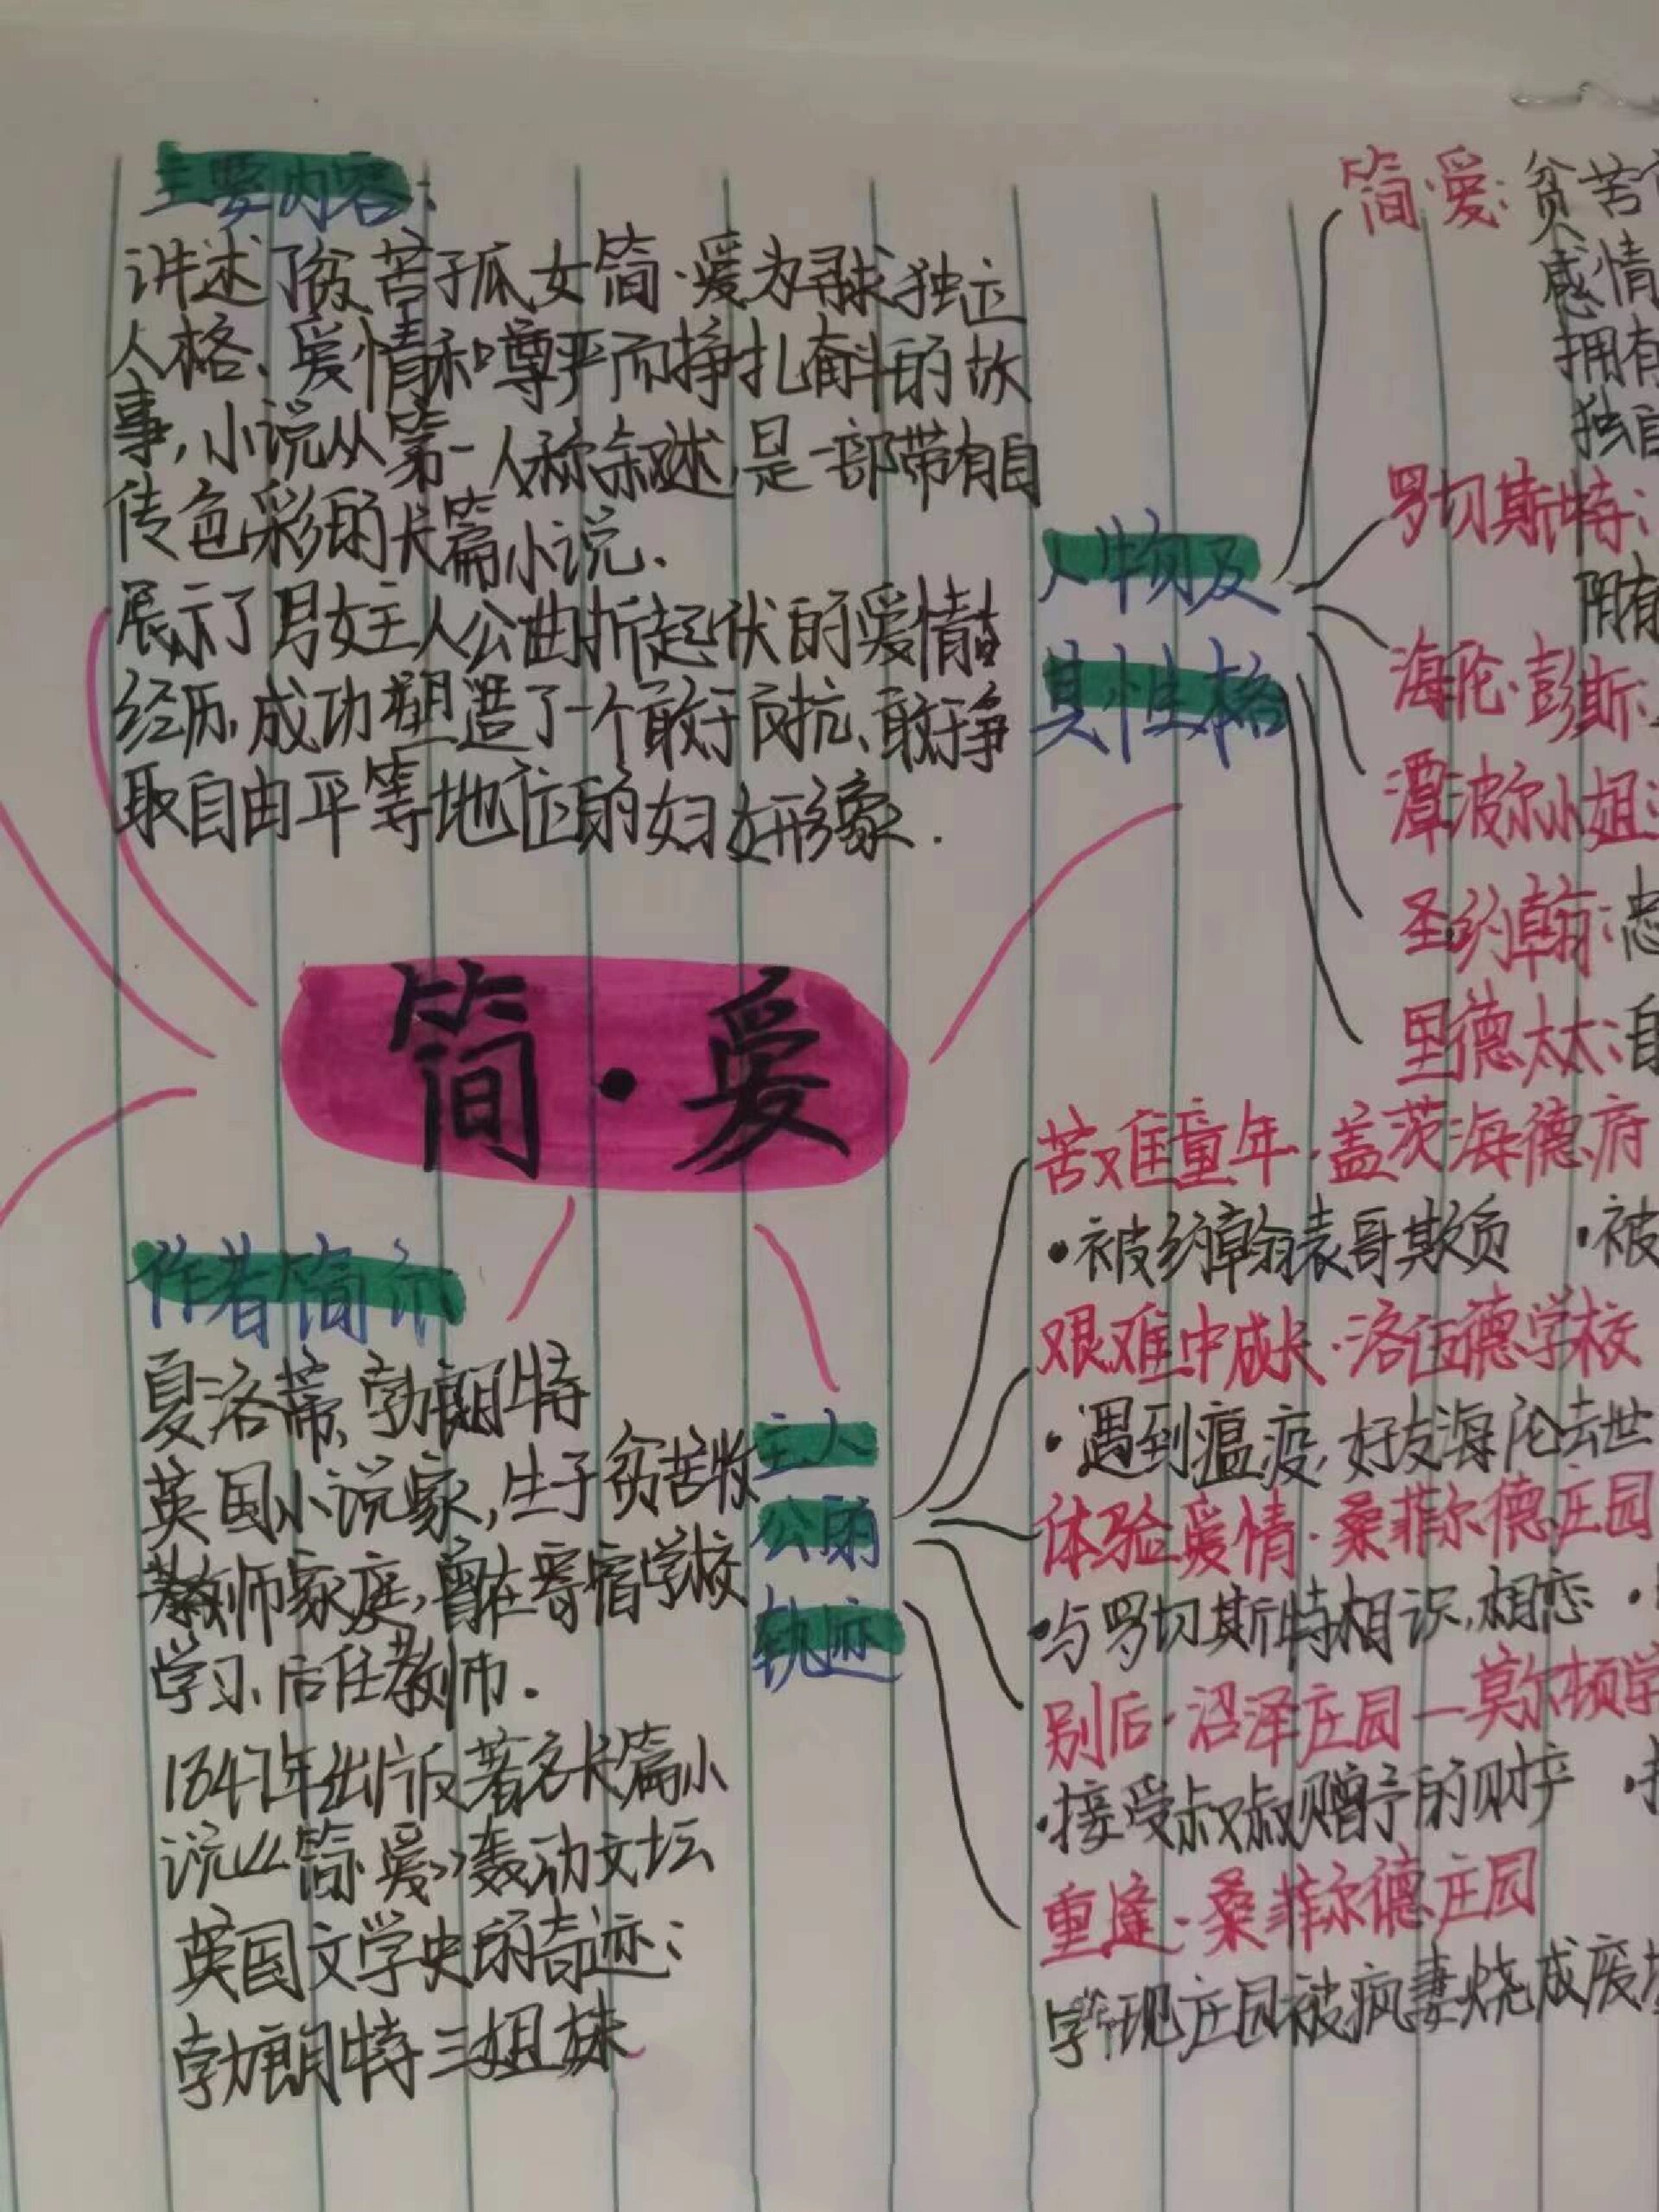 主要内容:
讲述了贫苦孤女简·爱为寻求独立
人格、爱情和尊严而挣扎奋斗的故
事,小说从第一人称叙述,是一部带有自
传色彩的长篇小说.
展示了男女主人公曲折起伏的爱情
经历,成功塑造了一个敢于反抗、敢于争
取自由平等地位的妇女形象.
简·爱
作者简介
夏洛蒂、勃朗特
英国小说家,生于贫苦牧
教师家庭,曾在寄宿学校
学习、后任教师.
1847年出版著名长篇小
说《简·爱》轰动文坛
英国文学史的奇迹:
勃朗特三姐妹
人物及
其性格
简·爱:贫苦
感情
拥有
独自
罗切斯特:
海伦·彭斯:
潭波尔小姐:
圣约翰:忠
里德太太:自
主人
公的
轨迹
苦难童年·盖茨海德府
·被约翰表哥欺负 ·被
艰难中成长·洛伍德学校
·遇到瘟疫,好友海伦去世
体验爱情·桑菲尔德庄园
·与罗切斯特相识,相恋·
别后·沼泽庄园—莫尔顿学
·接受叔叔赠予的财产 ·
重逢·桑菲尔德庄园
现庄园被疯妻烧成废